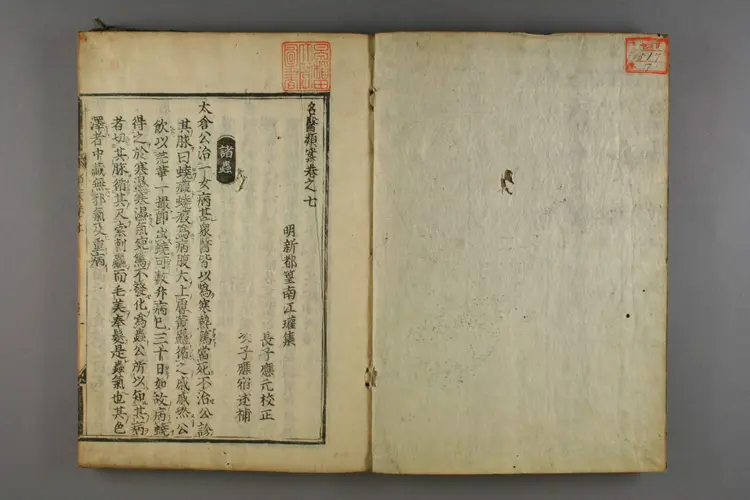 名醫類案卷之七
明新都篁南江瓘集
長子應元校正
次子應宿述補
諸蟲
太倉公治一女病甚衆醫皆以為寒熱篤當死不治公診
其脉曰蟯瘕蟯瘕為病腹大上膚黄麤循之戚戚然公
飲以芫華一撮即出蟯可數升病已三十日如故病蟯
得之於寒濕寒濕氣宛篤不發化為蟲公所以知其病
者切其脉循其尺索刺麤而毛美奉髮是蟲氣也其色
澤者中藏無邪氣及重病